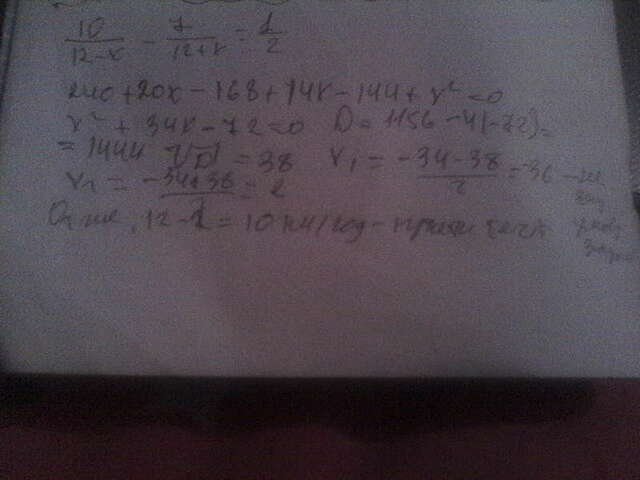 10/(12-x) - 7/(12+x) = 1/2
240+20x-168+14x-144+x²=0
x²+34x-72=0 D=1156-4(-72)=
=1444 √D=38 x₁=(-34-38)/2=-36 - не
x₂=(-34+38)/2=2
Отже, 12-2=10 км/год -